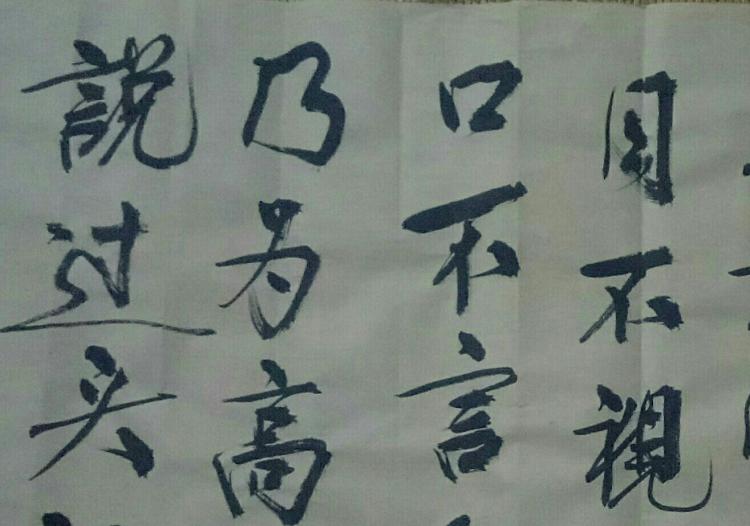 目不視
口不言
乃为高
說过头